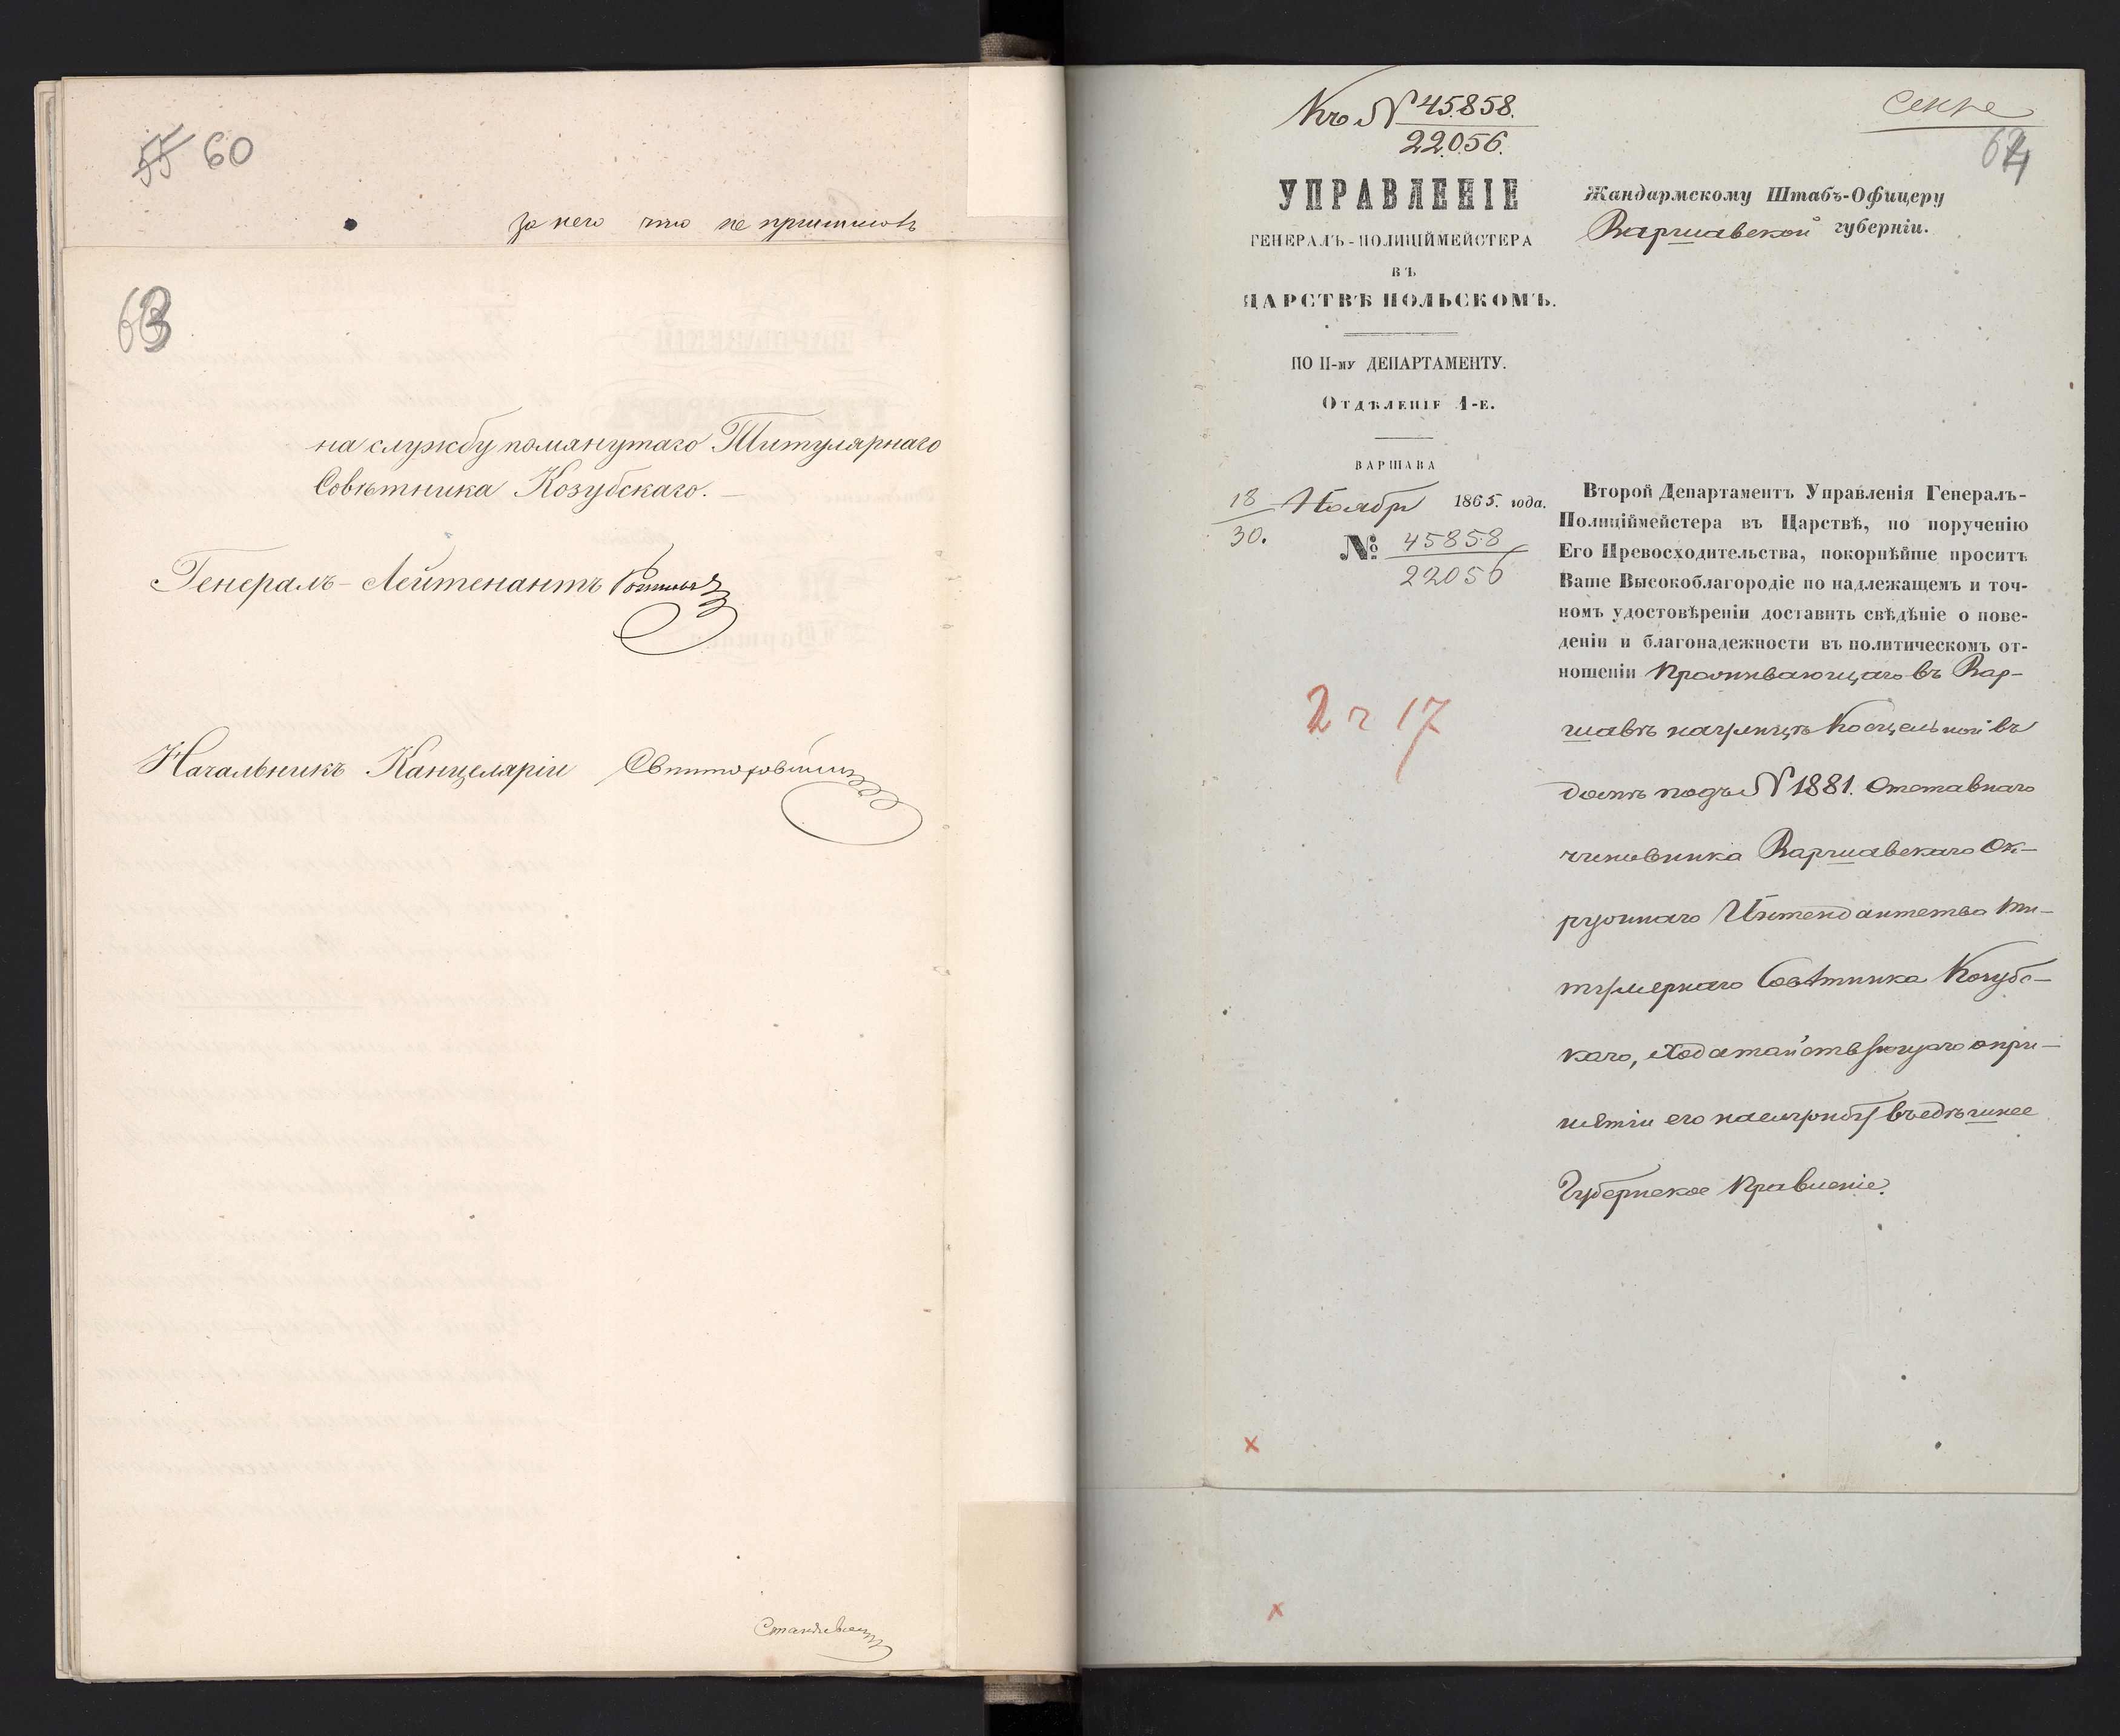 55 60
за него что не
63
на службу помянутаго Титулярнаго
Совѣтника Козубскаго.
Генералъ-Лейтенантъ
Начальникъ Канцеляріи
Къ № 45858.
22056.
Секре
64
УПРАВЛЕНІЕ
ГЕНЕРАЛЪ-ПОЛИЦІЙМЕЙСТЕРА
ВЪ
ЦАРСТВѢ ПОЛЬСКОМЪ.
ПО II-му ДЕПАРТАМЕНТУ.
Отдѣленіе 1-е.
ВАРШАВА
18 Ноября 1865. года.
30.
№ 45858
22056
2 ч 17
Жандармскому Штабъ-Офицеру
Варшавской губерніи.
Второй Департаментъ Управленія Генералъ-
Полиціймейстера въ Царствѣ, по порученію
Его Превосходительства, покорнѣйше проситъ
Ваше Высокоблагородіе по надлежащемъ и точ-
номъ удостовѣреніи доставить свѣдѣніе о пове-
деніи и благонадежности въ политическомъ от-
ношеніи проживающаго въ Вар-
шавѣ на улицѣ Косцельной въ
домѣ подъ № 1881. Отставнаго
чиновника Варшавскаго Ок-
ружнаго Интендантства Ти-
тулярнаго Совѣтника Козубс-
каго, ходатайствующаго о при-
нятіи его на службу въ здѣшнее
Губернское Правленіе.
х
х